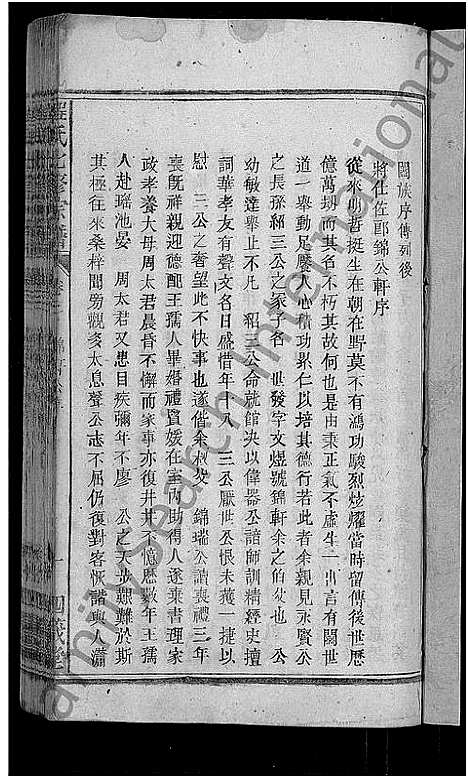 闔族序傳列後
將仕佐郎錦公軒序
從來明哲挺生在朝在野莫不有鴻功駿烈炫耀當時留傳後世歷
億萬刼而其名不朽其故何也是由秉正氣不虛生一出言有關世
道一舉動足勵人心積功累仁以培其德行若此者余親見永賢公
之長孫紹三公之冢子名 世發字文煜號錦軒余之伯父也 公
幼敏達舉止不凡 紹三公命就館決以偉器公諳師訓精經史擅
詞華孝友有聲文名日盛惜年十八 三公厭世公恨未獲一捷以
慰 三公之奢望此不快事也遂偕余叔父 錦瑞公讀喪禮三年
喪既祥親迎德配王孺人畢婚禮賢媛在室內助得人遂棄書理家
政孝養大母周太君晨昏不懈而家事亦復井井不憶歷數年王孺
人赴瑤池晏 周太君又患目疾彌年不廖 公之天步艱難於斯
其極往來桑梓間旁觀多太息聲公志不屈仍復對客恢諧與人瀟
氏七修宗譜
一